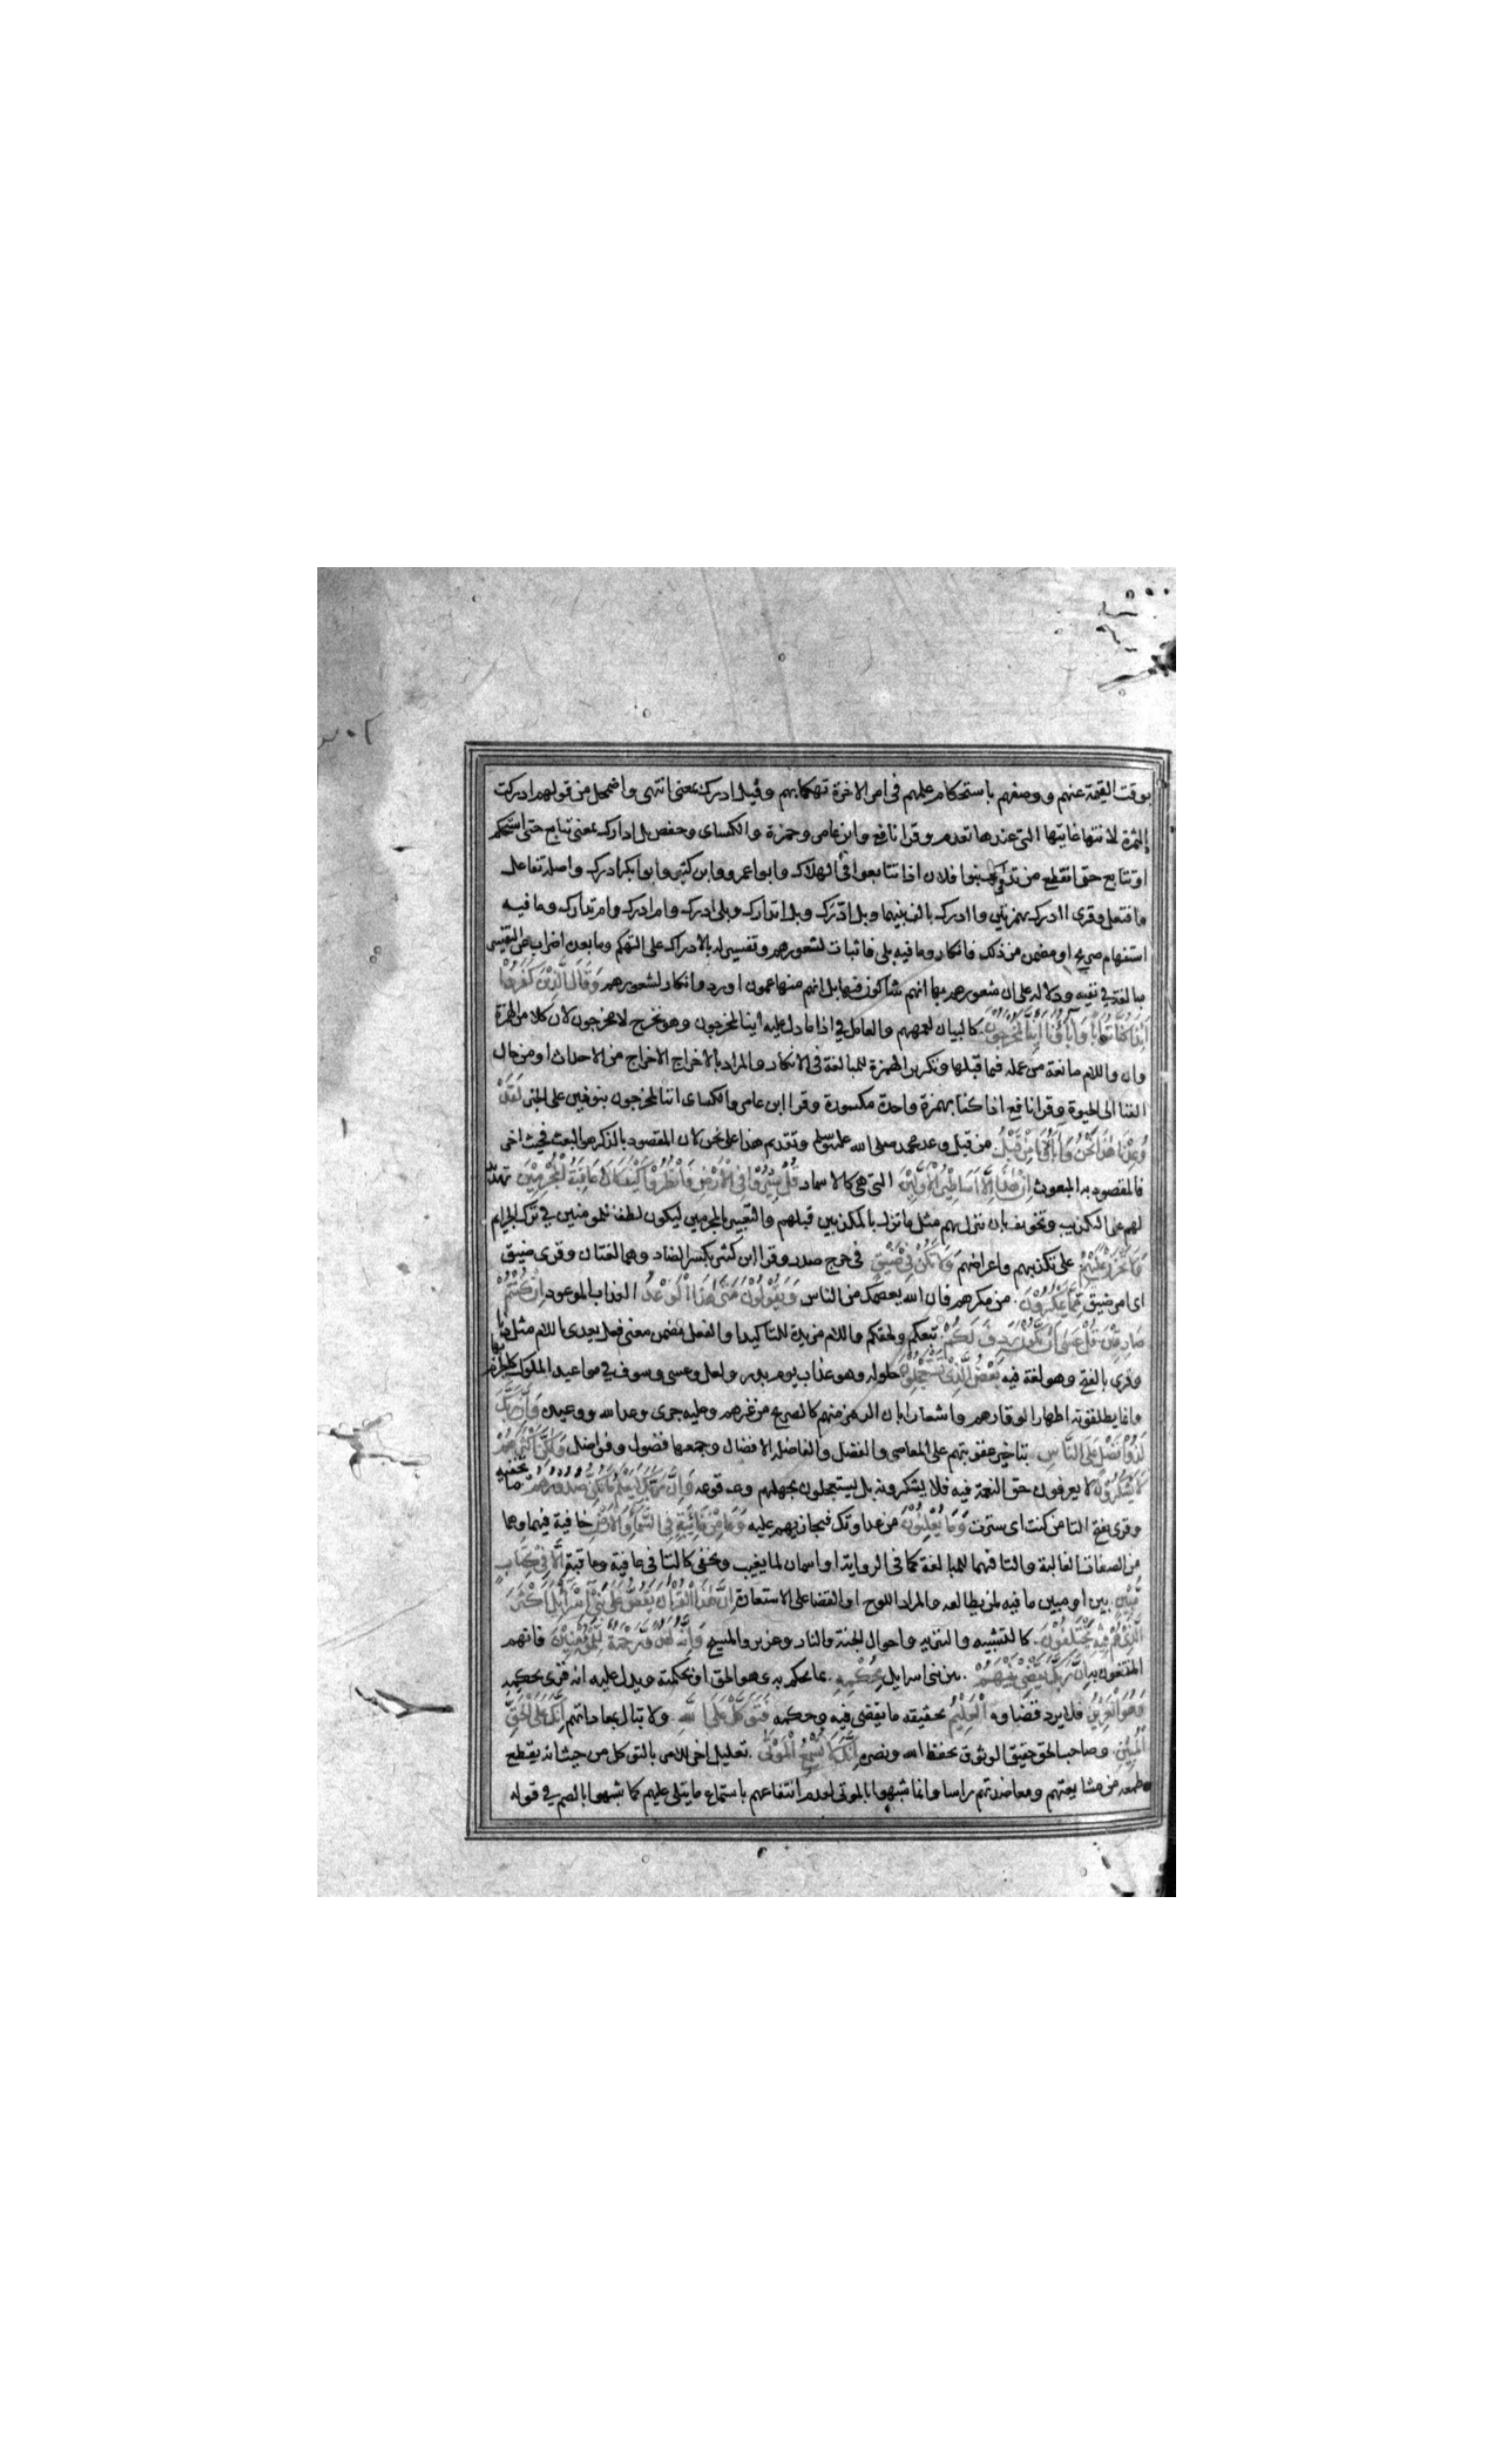 بوقت القيمة عنهم ووصفهم باستحكام علمهم في امر الاخرة تهكما بهم وقيل ادرك بمعنى انتهى واضمحل من قولهم ادركت
الثمرة لانتها غايتها التي عندها تعدم وقرا نافع وابن عامر وحمزة والكساى وحفص بل ادارك بمعنى تتابع حتى استحكم
او تتابع حتى انقطع من تدارك بنوا فلان اذا تتابعوا في الهلاك وابوا عمرو وابن كثير وابوا بكر ادرك واصله تفاعل
وافتعل وقرى اادرك بهمزتين واادرك بالف بينهما وبل ادّرك وبل اتدارك وبلى ادرك وام ادرك وام تدارك وما فيه
استفهام صريح او مضمن من ذلك فانكار وما فيه بلى فاثبات لشعورهم وتفسير له بالادراك على التهكم وما بعده اضراب عن التفسير
مبالغة في نفيه ودلالة على ان شعورهم بها انهم شاكون فيها بل انهم منها عمون او رد وانكار لشعورهم وَقَالَ الَّذِيْنَ كَفَرُوْا
اَئِذَا كُنَّا تُرَابًا وَاٰبَاؤُنَا اَئِنَّا لَمُخْرَجُوْنَ كالبيان لعمههم والعامل في اذا ما دل عليه اينا لمخرجون وهو نخرج لا مخرجون لان كلا من الهمزة
وان واللام مانعة من عمله فيما قبلها وتكرير الهمزة للمبالغة في الانكار والمراد بالاخراج الاخراج من الاحداث او من حال
الفنا الى الحيوة وقرا نافع اذا كنا بهمزة واحدة مكسورة وقرا ابن عامر والكساى اننا لمخرجون بنونين على الخبر لَقَدْ
وُعِدْنَا هٰذَا نَحْنُ وَاٰبَاؤُنَا مِنْ قَبْلُ من قبل وعد محمد صلى الله عليه وسلم وتقديم هذا على نحن لان المقصود بالذكر هو البعث فحيث اخر
فالمقصود به المبعوث اِنْ هٰذَا اِلَّا اَسَاطِيْرُ الْاَوَّلِيْنَ التي هي كالاسمار قُلْ سِيْرُوْا فِي الْاَرْضِ فَانْظُرُوْا كَيْفَ كَانَ عَاقِبَةُ الْمُجْرِمِيْنَ تهديد
لهم على التكذيب وتخويف بان ننزل بهم مثل ما نزل بالمكذبين قبلهم والتعبير بالمجرمين ليكون لطفا للمومنين في ترك الجرايم
وَلَا تَحْزَنْ عَلَيْهِمْ على تكذيبهم واعراضهم وَلَا تَكُنْ فِيْ ضَيْقٍ في حرج صدر وقرا ابن كثير بكسر الضاد وهما لغتان وقرى ضيق
اى امر ضيق مِمَّا يَمْكُرُوْنَ من مكرهم فان الله يعصمك من الناس وَيَقُوْلُوْنَ مَتٰى هٰذَا الْوَعْدُ العذاب الموعود اِنْ كُنْتُمْ
صَادِقِيْنَ قُلْ عَسٰى اَنْ يَكُوْنَ رَدِفَ لَكُمْ تبعكم ولحقكم واللام مزيدة للتاكيد او الفعل مضمن معنى فعل يعدى باللام مثل دنا
وقرى بالفتح وهو لغة فيه بَعْضُ الَّذِيْ تَسْتَعْجِلُوْنَ حلوله وهو عذاب يوم بدر ولعل وعسى وسوف في مواعيد الملوك كالجزم بها
وانما يطلقونه اظهارا لوقارهم واشعارا بان الرمز منهم كالصريح من غيرهم وعليه جرى وعد الله ووعيده وَاِنَّ رَبَّكَ
لَذُوْ فَضْلٍ عَلَى النَّاسِ بتاخير عقوبتهم على المعاصي والفضل والفاضلة الافضال وجمعها فضول وفواضل وَلٰكِنَّ اَكْثَرَهُمْ
لَا يَشْكُرُوْنَ لا يعرفون حق النعمة فيه فلا يشكرونه بل يستعجلون بجهلهم وقوعه وَاِنَّ رَبَّكَ لَيَعْلَمُ مَا تُكِنُّ صُدُوْرُهُمْ ما تخفيه
وقرى بفتح التا من كننت اى سترت وَمَا يُعْلِنُوْنَ من عداوتك فيجازيهم عليه وَمَا مِنْ غَائِبَةٍ فِي السَّمَاءِ وَالْاَرْضِ خافية فيهما وهما
من الصفات الغالبة والتا فيهما للمبالغة كما في الرواية او اسمان لما يغيب ويخفى كالتا في عافية وعاقبة اِلَّا فِيْ كِتَابٍ
مُّبِيْنٍ بين او مبين ما فيه لمن يطالعه والمراد اللوح او القضا على الاستعارة اِنَّ هٰذَا الْقُرْاٰنَ يَقُصُّ عَلٰى بَنِيْ اِسْرَائِيْلَ اَكْثَرَ
الَّذِيْ هُمْ فِيْهِ يَخْتَلِفُوْنَ كالتشبيه والتنزيه واحوال الجنة والنار وعزير والمسيح وَاِنَّهُ لَهُدًى وَّرَحْمَةٌ لِّلْمُؤْمِنِيْنَ فانهم
المنتفعون به اِنَّ رَبَّكَ يَقْضِيْ بَيْنَهُمْ بين بني اسرايل بِحُكْمِهِ بما يحكم به وهو الحق او بحكمته ويدل عليه انه قرى بحكمه
وَهُوَ الْعَزِيْزُ فلا يرد قضاوه الْعَلِيْمُ بحقيقه ما يقضى فيه وحكمه فَتَوَكَّلْ عَلَى اللّٰهِ ولا تبال بمعاداتهم اِنَّكَ عَلَى الْحَقِّ
الْمُبِيْنِ وصاحب الحق حقيق الوثوق بحفظ الله ونصره اِنَّكَ لَا تُسْمِعُ الْمَوْتٰى تعليل اخر للامر بالتوكل من حيث انه يقطع
طمعه من مشايعتهم ومعاضدتهم راسا وانما شبهوا بالموتى لعدم انتفاعهم باستماع ما يتلى عليهم كما شبهوا بالصم في قوله